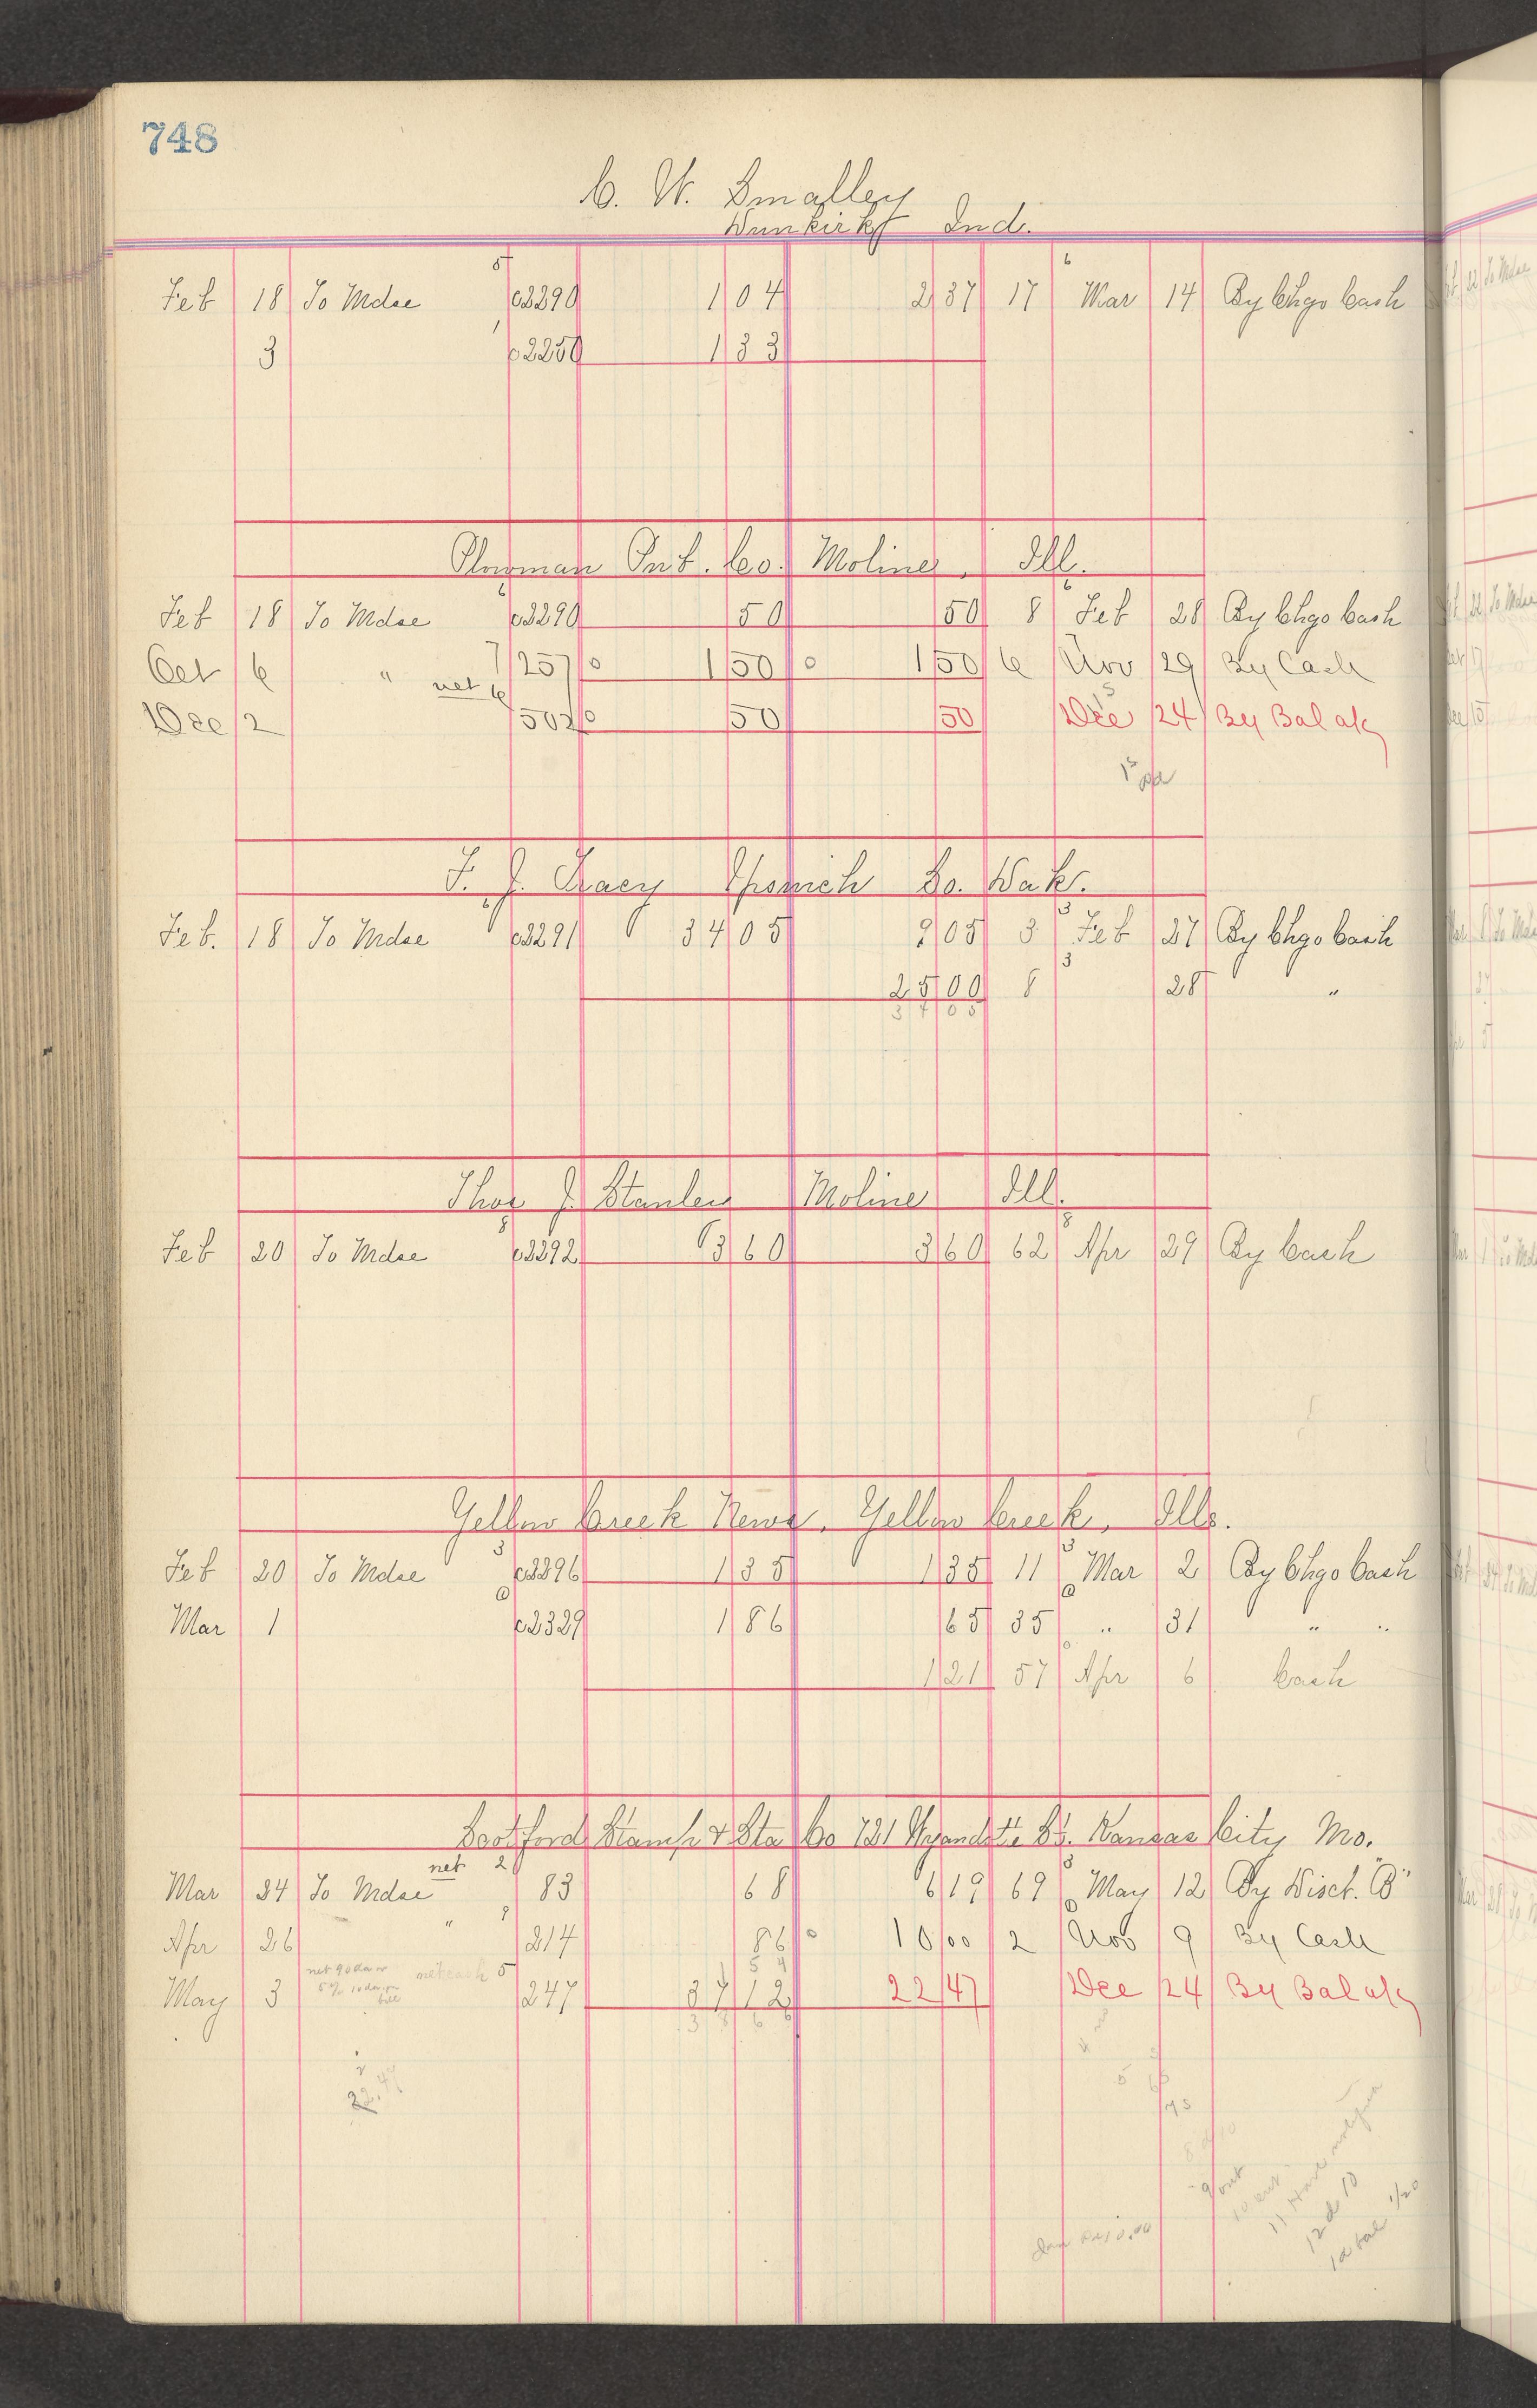 748
C. W. Smalley
Dunkirk Ind.
Feb 18 To Mdse 5 c2290 1 04 2 37 17 6 Mar 14 By Chgo Cash
3 1 c2250 1 33
Plowman Pub. Co. Moline, Ill.
Feb 18 To Mdse 6 c2290 50 50 8 6 Feb 28 By Chgo Cash
Oct 6 " 7 257 0 1 50 0 1 50 6 Nov 29 By Cash
Dec 2 net 6 502 0 50 50 Dec 24 By Bal a/c
F. J. Tracy Ipswich So. Dak.
Feb. 18 To Mdse c2291 34 05 9 05 3 3 Feb 27 By Chgo Cash
25 00 8 3 28 "
Thos J. Stanley Moline Ill.
Feb 20 To Mdse c2292 3 60 3 60 62 Apr 29 By Cash
Yellow Creek News, Yellow Creek, Ills.
Feb 20 To Mdse 3 c2296 1 35 1 35 11 3 Mar 2 By Chgo Cash
Mar 1 c2329 1 86 65 35 " 31 " "
1 21 57 Apr 6 Cash
Stamp & Sta Co 721 Wyandotte St. Kansas City, Mo.
Mar 24 To Mdse net 2 83 68 6 19 69 3 May 12 By Disct. "B"
Apr 26 " 214 86 0 10 00 2 Nov 9 By Cash
May 3 net 90 da or net cash 5 247 37 12 22 47 Dec 24 By Bal a/c
5% 10 da on
bill
22.47
9 out
12 d 10